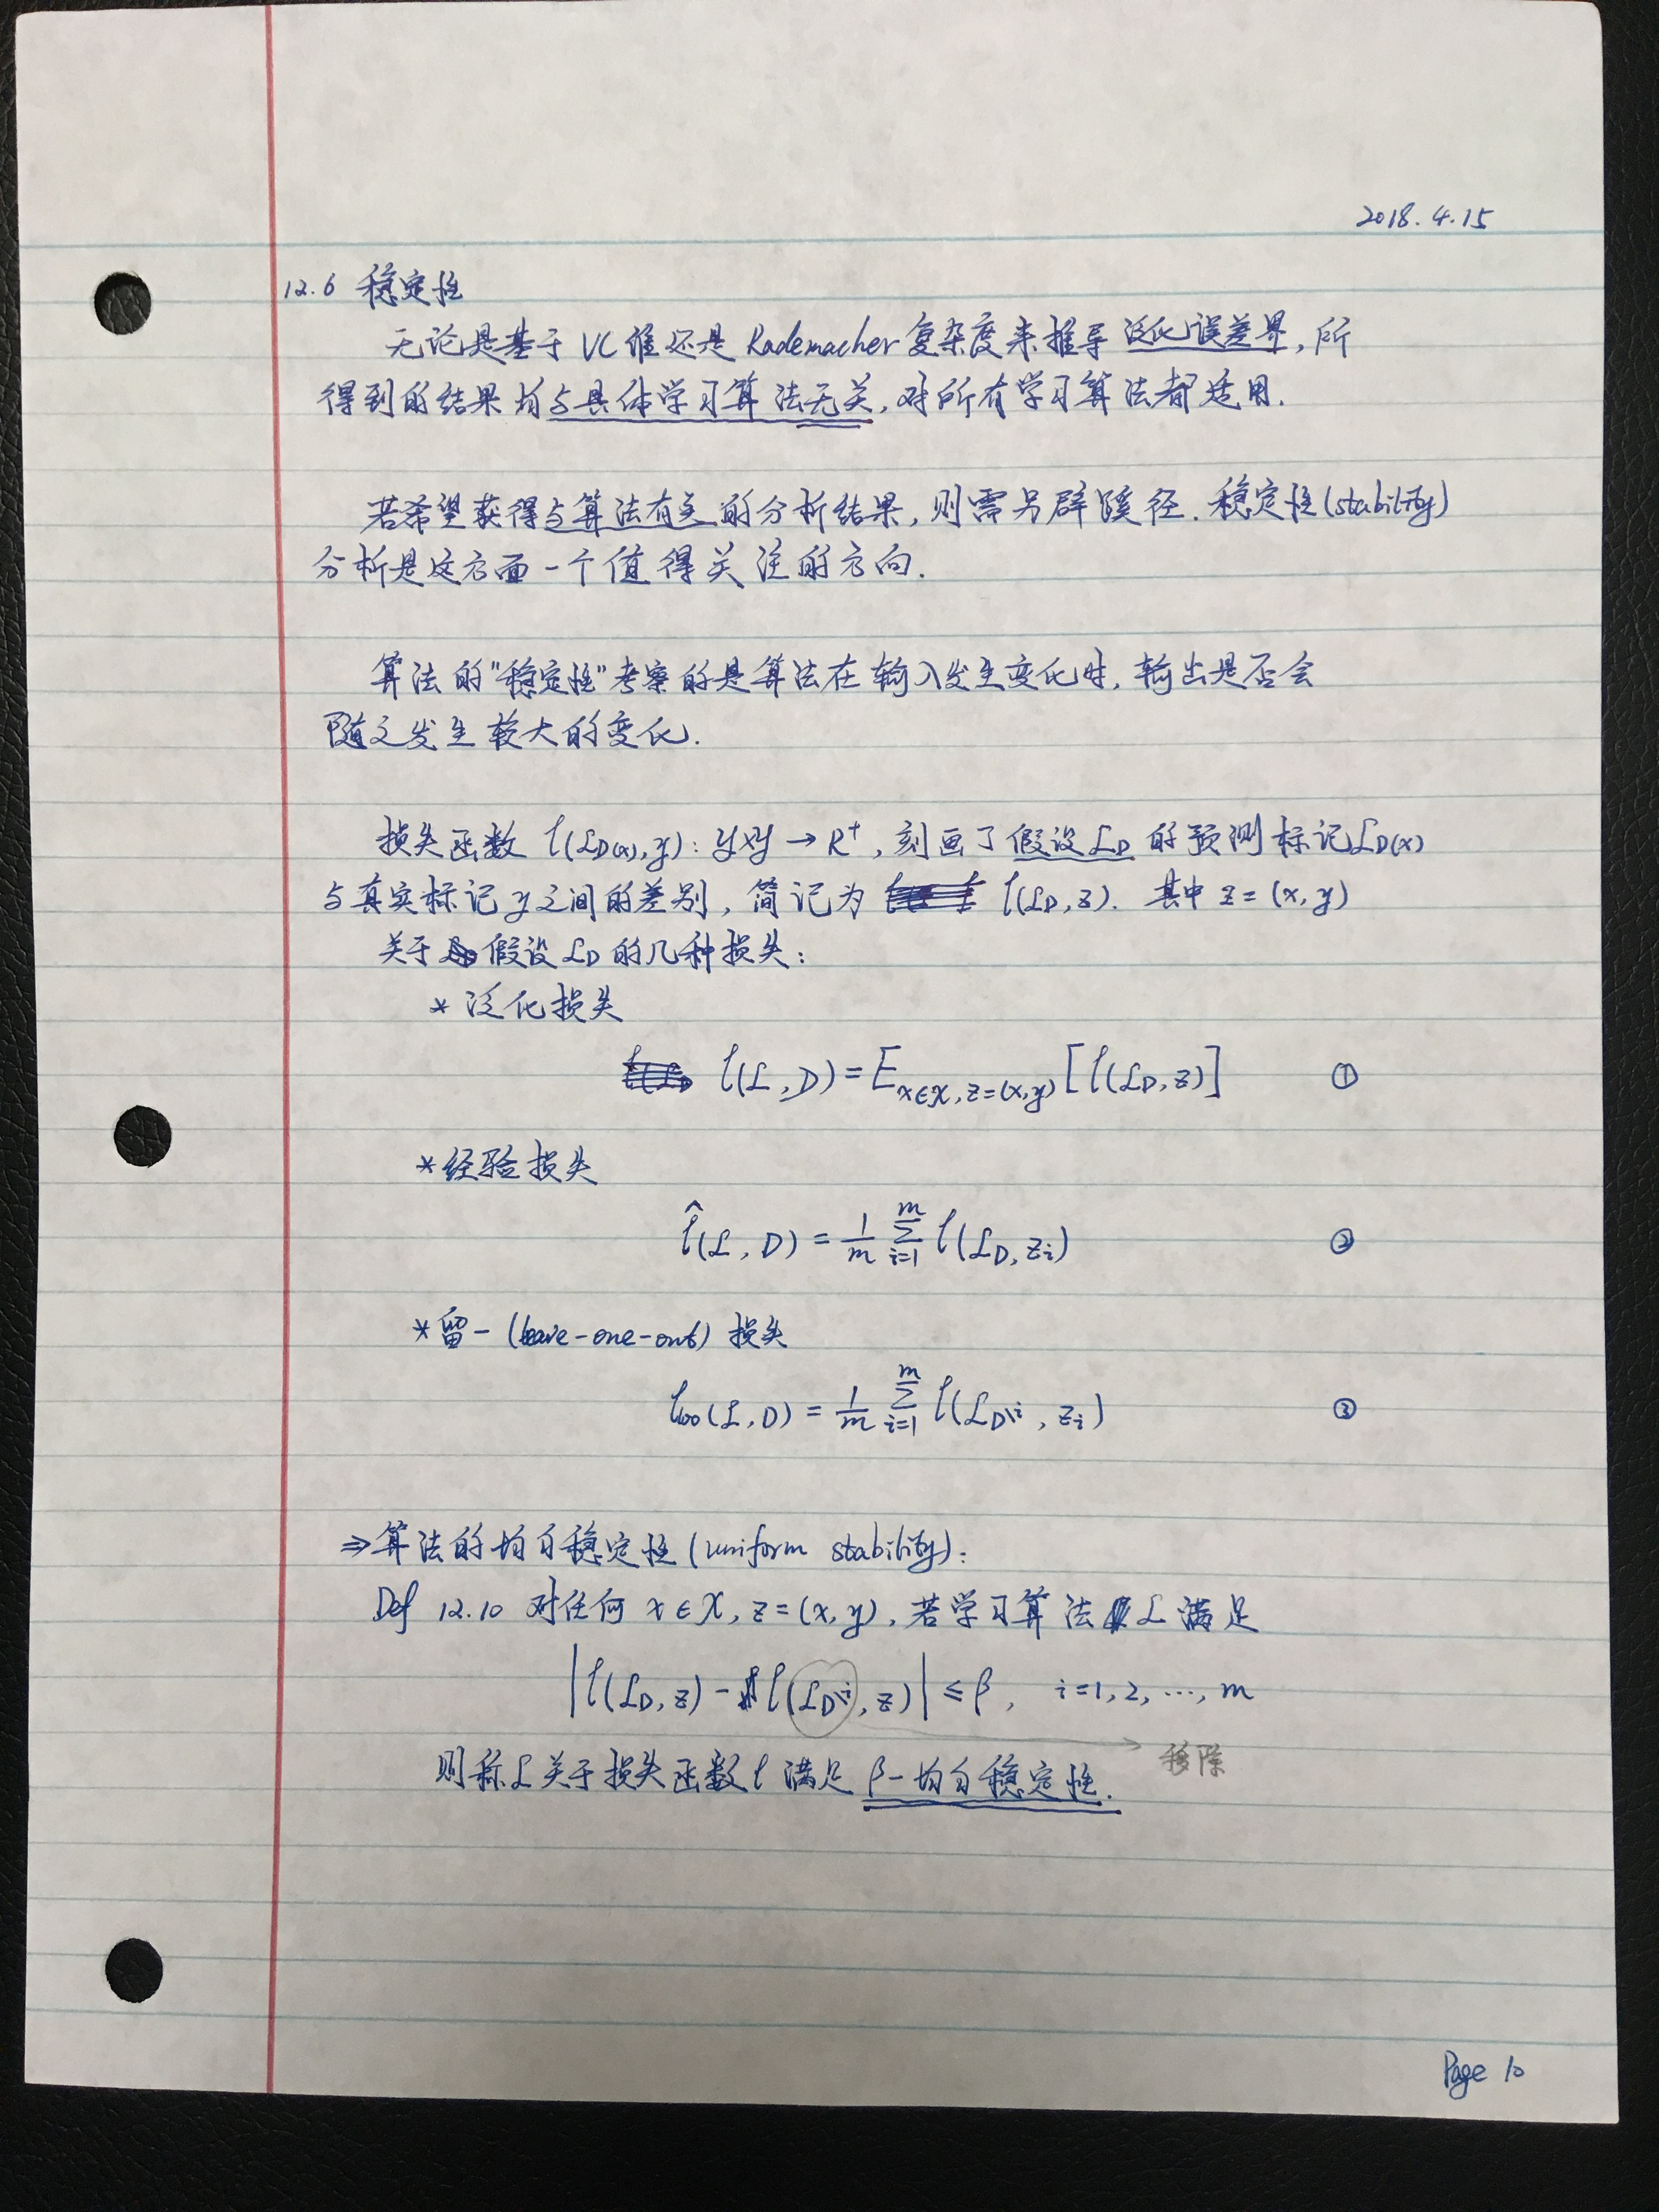 2018.4.15
12.6 稳定性
无论是基于 VC 维还是 Rademacher 复杂度来推导泛化误差界,所
得到的结果均与具体学习算法无关,对所有学习算法都适用.
若希望获得与算法有关的分析结果,则需另辟蹊径.稳定性(stability)
分析是这方面一个值得关注的方向.
算法的"稳定性"考察的是算法在输入发生变化时,输出是否会
随之发生较大的变化.
损失函数 ℓ(𝓛D(x),y): 𝒴×𝒴 → R⁺, 刻画了假设 𝓛D 的预测标记 𝓛D(x)
与真实标记 y 之间的差别, 简记为 ℓ(𝓛D, z). 其中 z = (x, y)
关于假设 𝓛D 的几种损失:
* 泛化损失
ℓ(𝓛, D) = E x∈𝒳, z=(x,y) [ℓ(𝓛D, z)] ①
* 经验损失
ℓ̂(𝓛, D) = 1/m ∑_{i=1}^{m} ℓ(𝓛D, zi) ②
* 留一 (leave-one-out) 损失
ℓloo(𝓛, D) = 1/m ∑_{i=1}^{m} ℓ(𝓛D\i, zi) ③
⇒ 算法的均匀稳定性 (uniform stability):
Def 12.10 对任何 x∈𝒳, z=(x, y), 若学习算法 𝓛 满足
|ℓ(𝓛D, z) - ℓ(𝓛D\i, z)| ≤ β, i=1, 2, ···, m
移除
则称 𝓛 关于损失函数 ℓ 满足 β-均匀稳定性.
Page 10